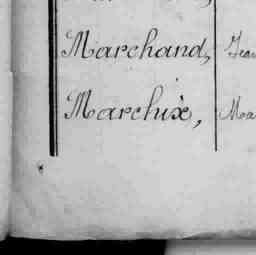 Marchand, Jean
Marchix, Ma